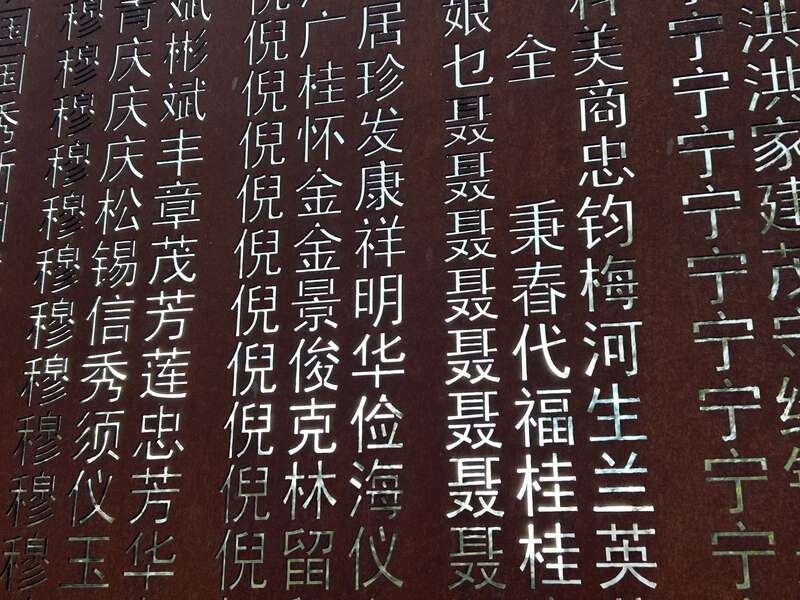 国
秀
穆庆彬
穆庆斌
穆庆丰
穆松章
穆锡茂
穆信芳
穆秀莲
穆须忠
穆仪芳
穆玉华
倪广居
倪桂珍
倪怀发
倪金康
倪金祥
倪景明
倪俊华
倪克俭
倪林海
倪留仪
娘
乜全美
聂 商
聂 忠
聂秉钧
聂春梅
聂代河
聂福生
聂桂兰
聂桂英
宁洪
宁洪
宁家
宁建
宁茂
宁守
宁
宁
宁